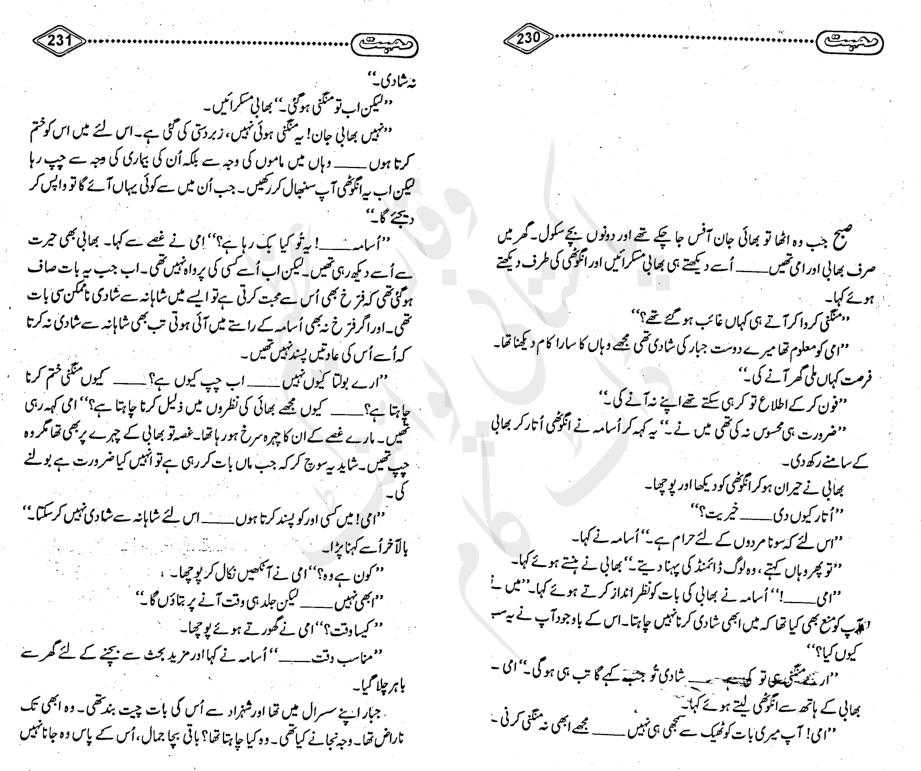 محبت 230
صبح جب وہ اٹھا تو بھائی جان آفس جا چکے تھے اور دونوں بچے سکول۔ گھر میں
صرف بھابی اور امی تھیں ____ اُسے دیکھتے ہی بھابی مسکرائیں اور انگوٹھی کی طرف دیکھتے
ہوئے کہا۔
”منگنی کروا کر آتے ہی کہاں غائب ہو گئے تھے؟“
”امی کو معلوم تھا میرے دوست جبار کی شادی تھی مجھے وہاں کا سارا کام دیکھنا تھا۔
فرصت کہاں ملی گھر آنے کی۔“
”فون کر کے اطلاع تو کر ہی سکتے تھے اپنے نہ آنے کی۔“
”ضرورت ہی محسوس نہ کی تھی میں نے۔“ یہ کہہ کر اُسامہ نے انگوٹھی اُتار کر بھابی
کے سامنے رکھ دی۔
بھابی نے حیران ہو کر انگوٹھی کو دیکھا اور پوچھا۔
”اُتار کیوں دی ____ خیریت؟“
”اس لئے کہ سونا مردوں کے لئے حرام ہے۔“ اُسامہ نے کہا۔
”تو پھر وہاں کہتے، وہ لوگ ڈائمنڈ کی پہنا دیتے۔“ بھابی نے ہنستے ہوئے کہا۔
”امی ____!“ اُسامہ نے بھابی کی بات کو نظر انداز کرتے ہوئے کہا۔ ”میں نے
آپ کو منع بھی کیا تھا کہ میں ابھی شادی کرنا نہیں چاہتا۔ اس کے باوجود آپ نے یہ سب
کیوں کیا؟“
منگنی ہی تو ____ شادی تو جب کہے گا تب ہی ہو گی۔“ امی
بھابی کے ہاتھ سے انگوٹھی لیتے ہوئے کہا۔
”امی! آپ میری بات کو ٹھیک سے سمجھی ہی نہیں ____ مجھے ابھی نہ منگنی کرنی
محبت 231
نہ شادی۔“
”لیکن اب تو منگنی ہو گئی۔“ بھابی مسکرائیں۔
”نہیں بھابی جان! یہ منگنی ہوئی نہیں، زبردستی کی گئی ہے۔ اس لئے میں اس کو ختم
کرتا ہوں ____ وہاں میں ماموں کی وجہ سے بلکہ اُن کی بیماری کی وجہ سے چپ رہا
لیکن اب یہ انگوٹھی آپ سنبھال کر رکھیں۔ جب اُن میں سے کوئی یہاں آئے گا تو واپس کر
دیجئے گا۔“
”اُسامہ ____! یہ تُو کیا بک رہا ہے؟“ امی نے غصے سے کہا۔ بھابی بھی حیرت
سے اُسے دیکھ رہی تھیں۔ لیکن اب اُسے کسی کی پرواہ نہیں تھی۔ اب جب یہ بات صاف
ہو گئی تھی کہ فرخ بھی اُس سے محبت کرتی ہے تو ایسے میں شاہانہ سے شادی ناممکن سی بات
تھی۔ اور اگر فرخ نہ بھی اُسامہ کے راستے میں آئی ہوتی تب بھی شاہانہ سے شادی نہ کرتا
کہ اُسے اُس کی عادتیں پسند نہیں تھیں۔
”ارے بولتا کیوں نہیں ____ اب چپ کیوں ہے؟ ____ کیوں منگنی ختم کرنا
چاہتا ہے؟ ____ کیوں مجھے بھائی کی نظروں میں ذلیل کرنا چاہتا ہے؟“ امی کہہ رہی
تھیں۔ مارے غصے کے ان کا چہرہ سرخ ہو رہا تھا۔ غصہ تو بھابی کے چہرے پر بھی تھا مگر وہ
چپ تھیں۔ شاید یہ سوچ کر کہ جب ماں بات کر رہی ہے تو انہیں کیا ضرورت ہے بولنے
کی۔
”امی! میں کسی اور کو پسند کرتا ہوں ____ اس لئے شاہانہ سے شادی نہیں کر سکتا۔“
بالآخر اُسے کہنا پڑا۔
”کون ہے وہ؟“ امی نے آنکھیں نکال کر پوچھا۔
”ابھی نہیں ____ لیکن جلد ہی وقت آنے پر بتاؤں گا۔“
”کیسا وقت؟“ امی نے گھورتے ہوئے پوچھا۔
”مناسب وقت ____“ اُسامہ نے کہا اور مزید بحث سے بچنے کے لئے گھر سے
باہر چلا گیا۔
جبار اپنے سسرال میں تھا اور شہزاد سے اُس کی بات چیت بند تھی۔ وہ ابھی تک
ناراض تھا۔ وجہ نجانے کیا تھی۔ وہ کیا چاہتا تھا؟ باقی بچا جمال، اُس کے پاس وہ جانا نہیں